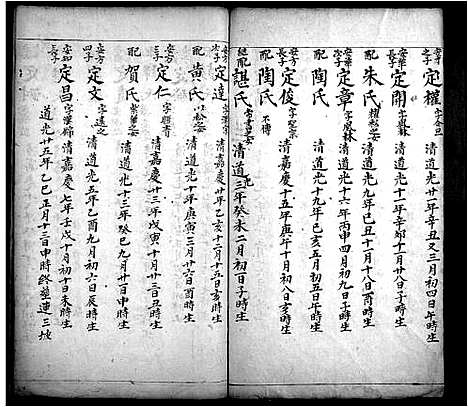 定權 字合亘 清道光廿一年辛丑又三月初四日午時生
安華之子 定開 清道光十一年辛卯十月廿八日子時生
配 朱氏 清道光九年己丑十月十八日酉時生
安華次子 定章 字茂林 清道光十六年丙申四月初九日子時生
配 陶氏 清道光十九年己亥五月初五日午時生
安方長子 定俊 清嘉慶十五年庚午十月初八日亥時生
配 陶氏 不傳
継配 諶氏 清道光三年癸未二月初一日子時生
安方次子 定達 清嘉慶廿年乙亥十二月十五日亥時生
配 黃氏 清道光十年庚寅三月廿六日酉時生
安方三子 定仁 字順齊 清嘉慶廿三年戊寅十月廿三日丑時生
配 賀氏 清道光十三年癸巳九月廿一日申時生
安方四子 定文 字達之 清道光五年乙酉九月初六日辰時生
安如長子 定昌 清嘉慶七年壬戌十月初十日未時生
道光廿五年乙巳正月十三日申時終葬連三坡